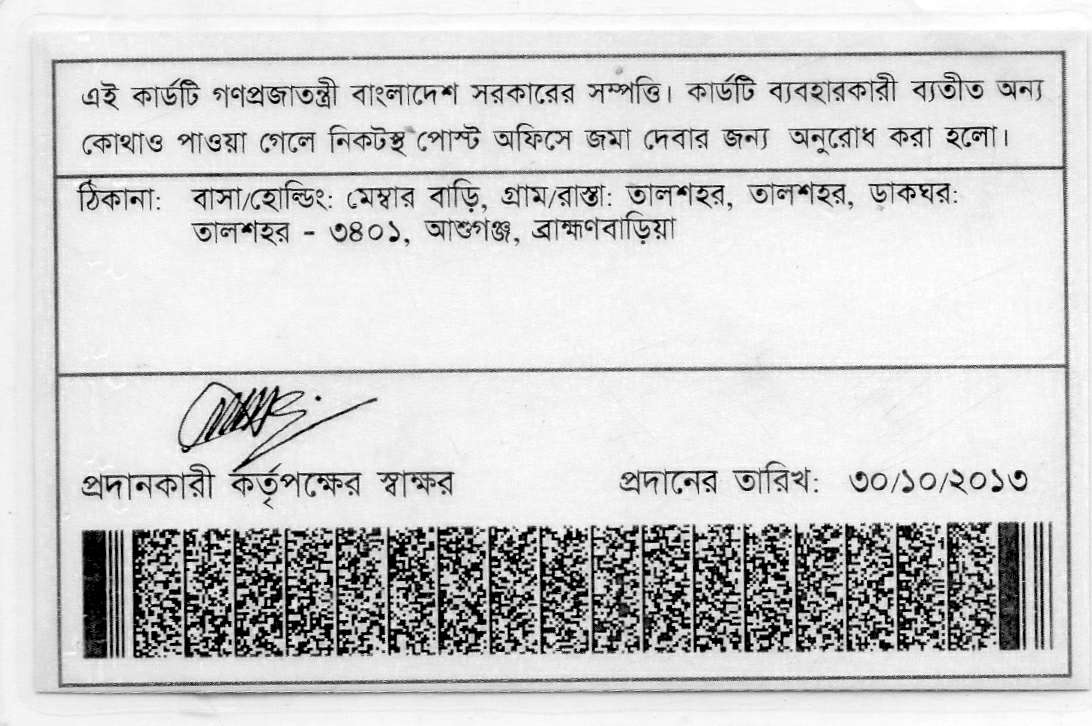 এই কার্ডটি গণপ্রজাতন্ত্রী বাংলাদেশ সরকারের সম্পত্তি। কার্ডটি ব্যবহারকারী ব্যতীত অন্য
কোথাও পাওয়া গেলে নিকটস্থ পোস্ট অফিসে জমা দেবার জন্য অনুরোধ করা হলো।
ঠিকানা: বাসা/হোল্ডিং: মেম্বার বাড়ি, গ্রাম/রাস্তা: তালশহর, তালশহর, ডাকঘর:
তালশহর - ৩৪০১, আশুগঞ্জ, ব্রাহ্মণবাড়িয়া
প্রদানকারী কর্তৃপক্ষের স্বাক্ষর প্রদানের তারিখ: ৩০/১০/২০১৩